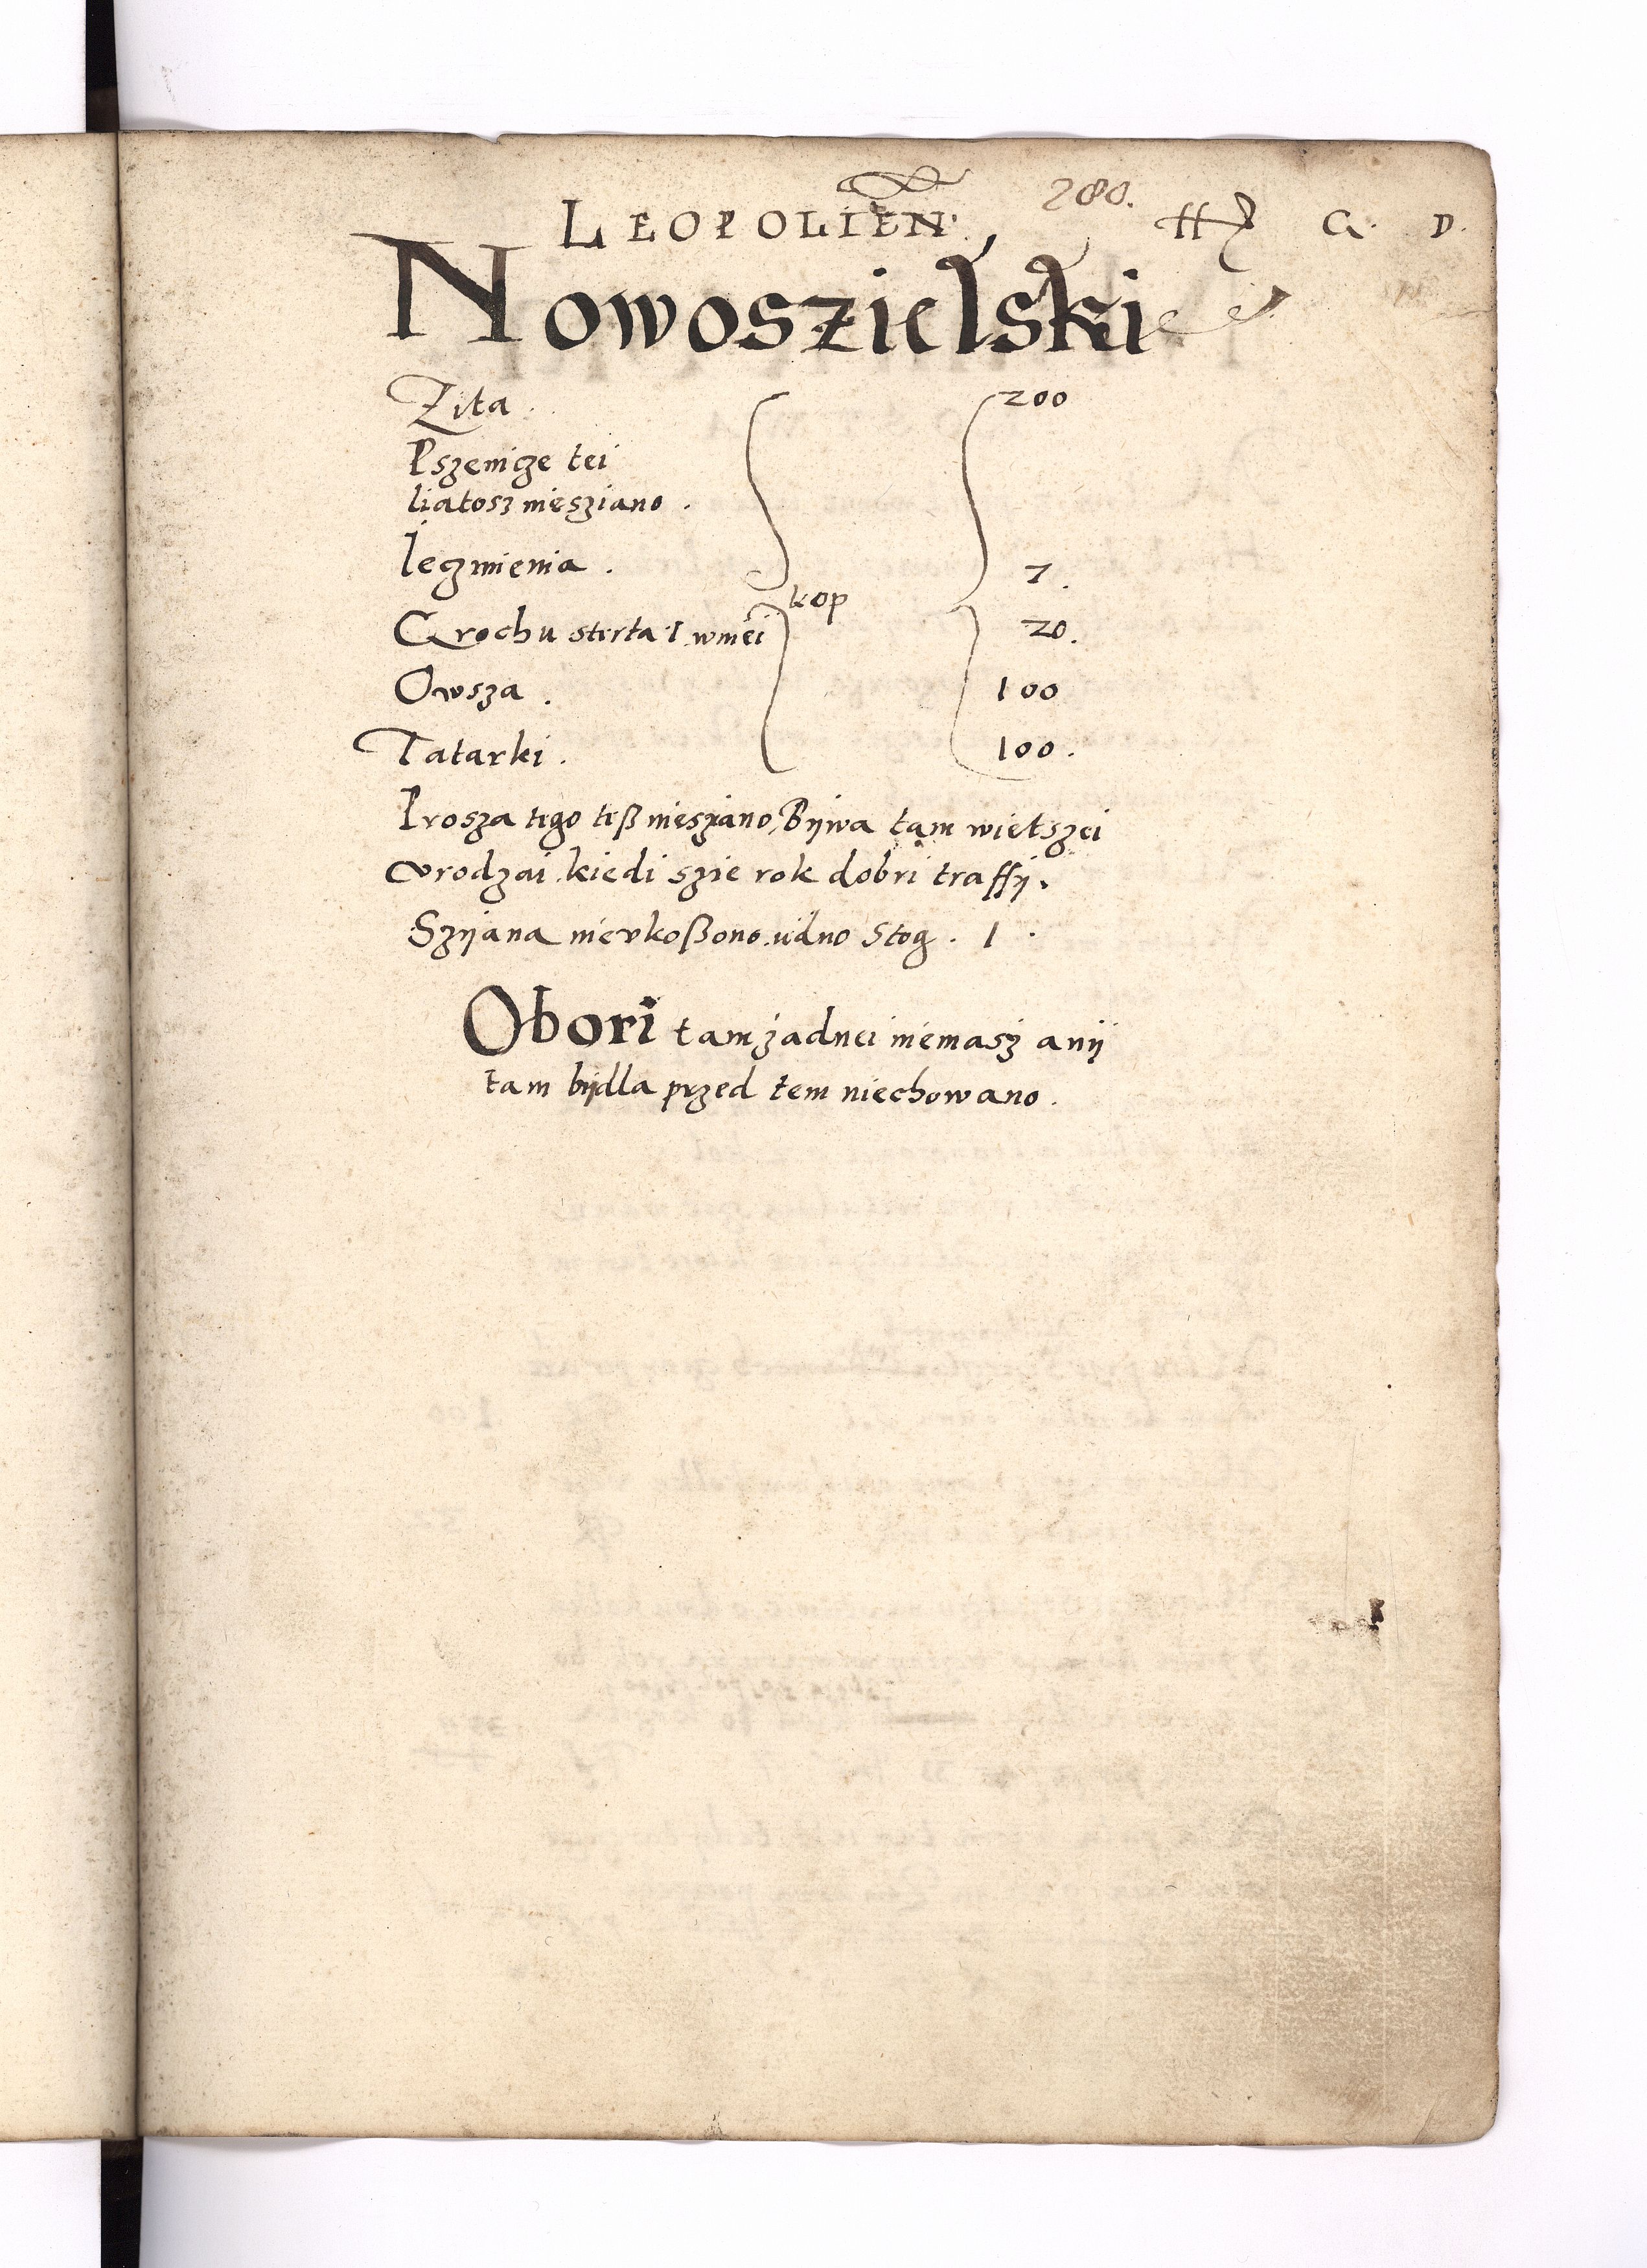 LEOPOLIEN. 280. G. D.
Nowoszielski
Zita . 200
Pszenicze tei
liatosz niesziano .
Jeczmienia . 7.
kop
Grochu sterta 1 wniei 20.
Owsza . 100
Tatarki . 100.
Prosza tego teß niesziano, Bÿwa tam wietszei
vrodzai kiedi szie rok dobri traffÿ.
Szÿana nievkoßono iidno Stog . 1 .
Obori tam zadnei niemasz anÿ
tam bÿdla przed tem niechowano .